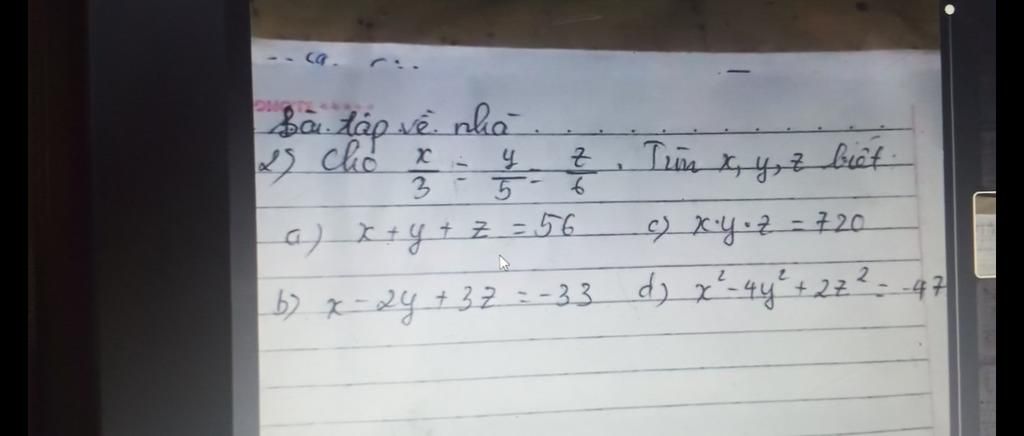 Bài tập về nhà
2) Cho x/3 = y/5 = z/6. Tìm x, y, z biết:
a) x + y + z = 56 c) x.y.z = 720
b) x - 2y + 3z = -33 d) x² - 4y² + 2z² = -47